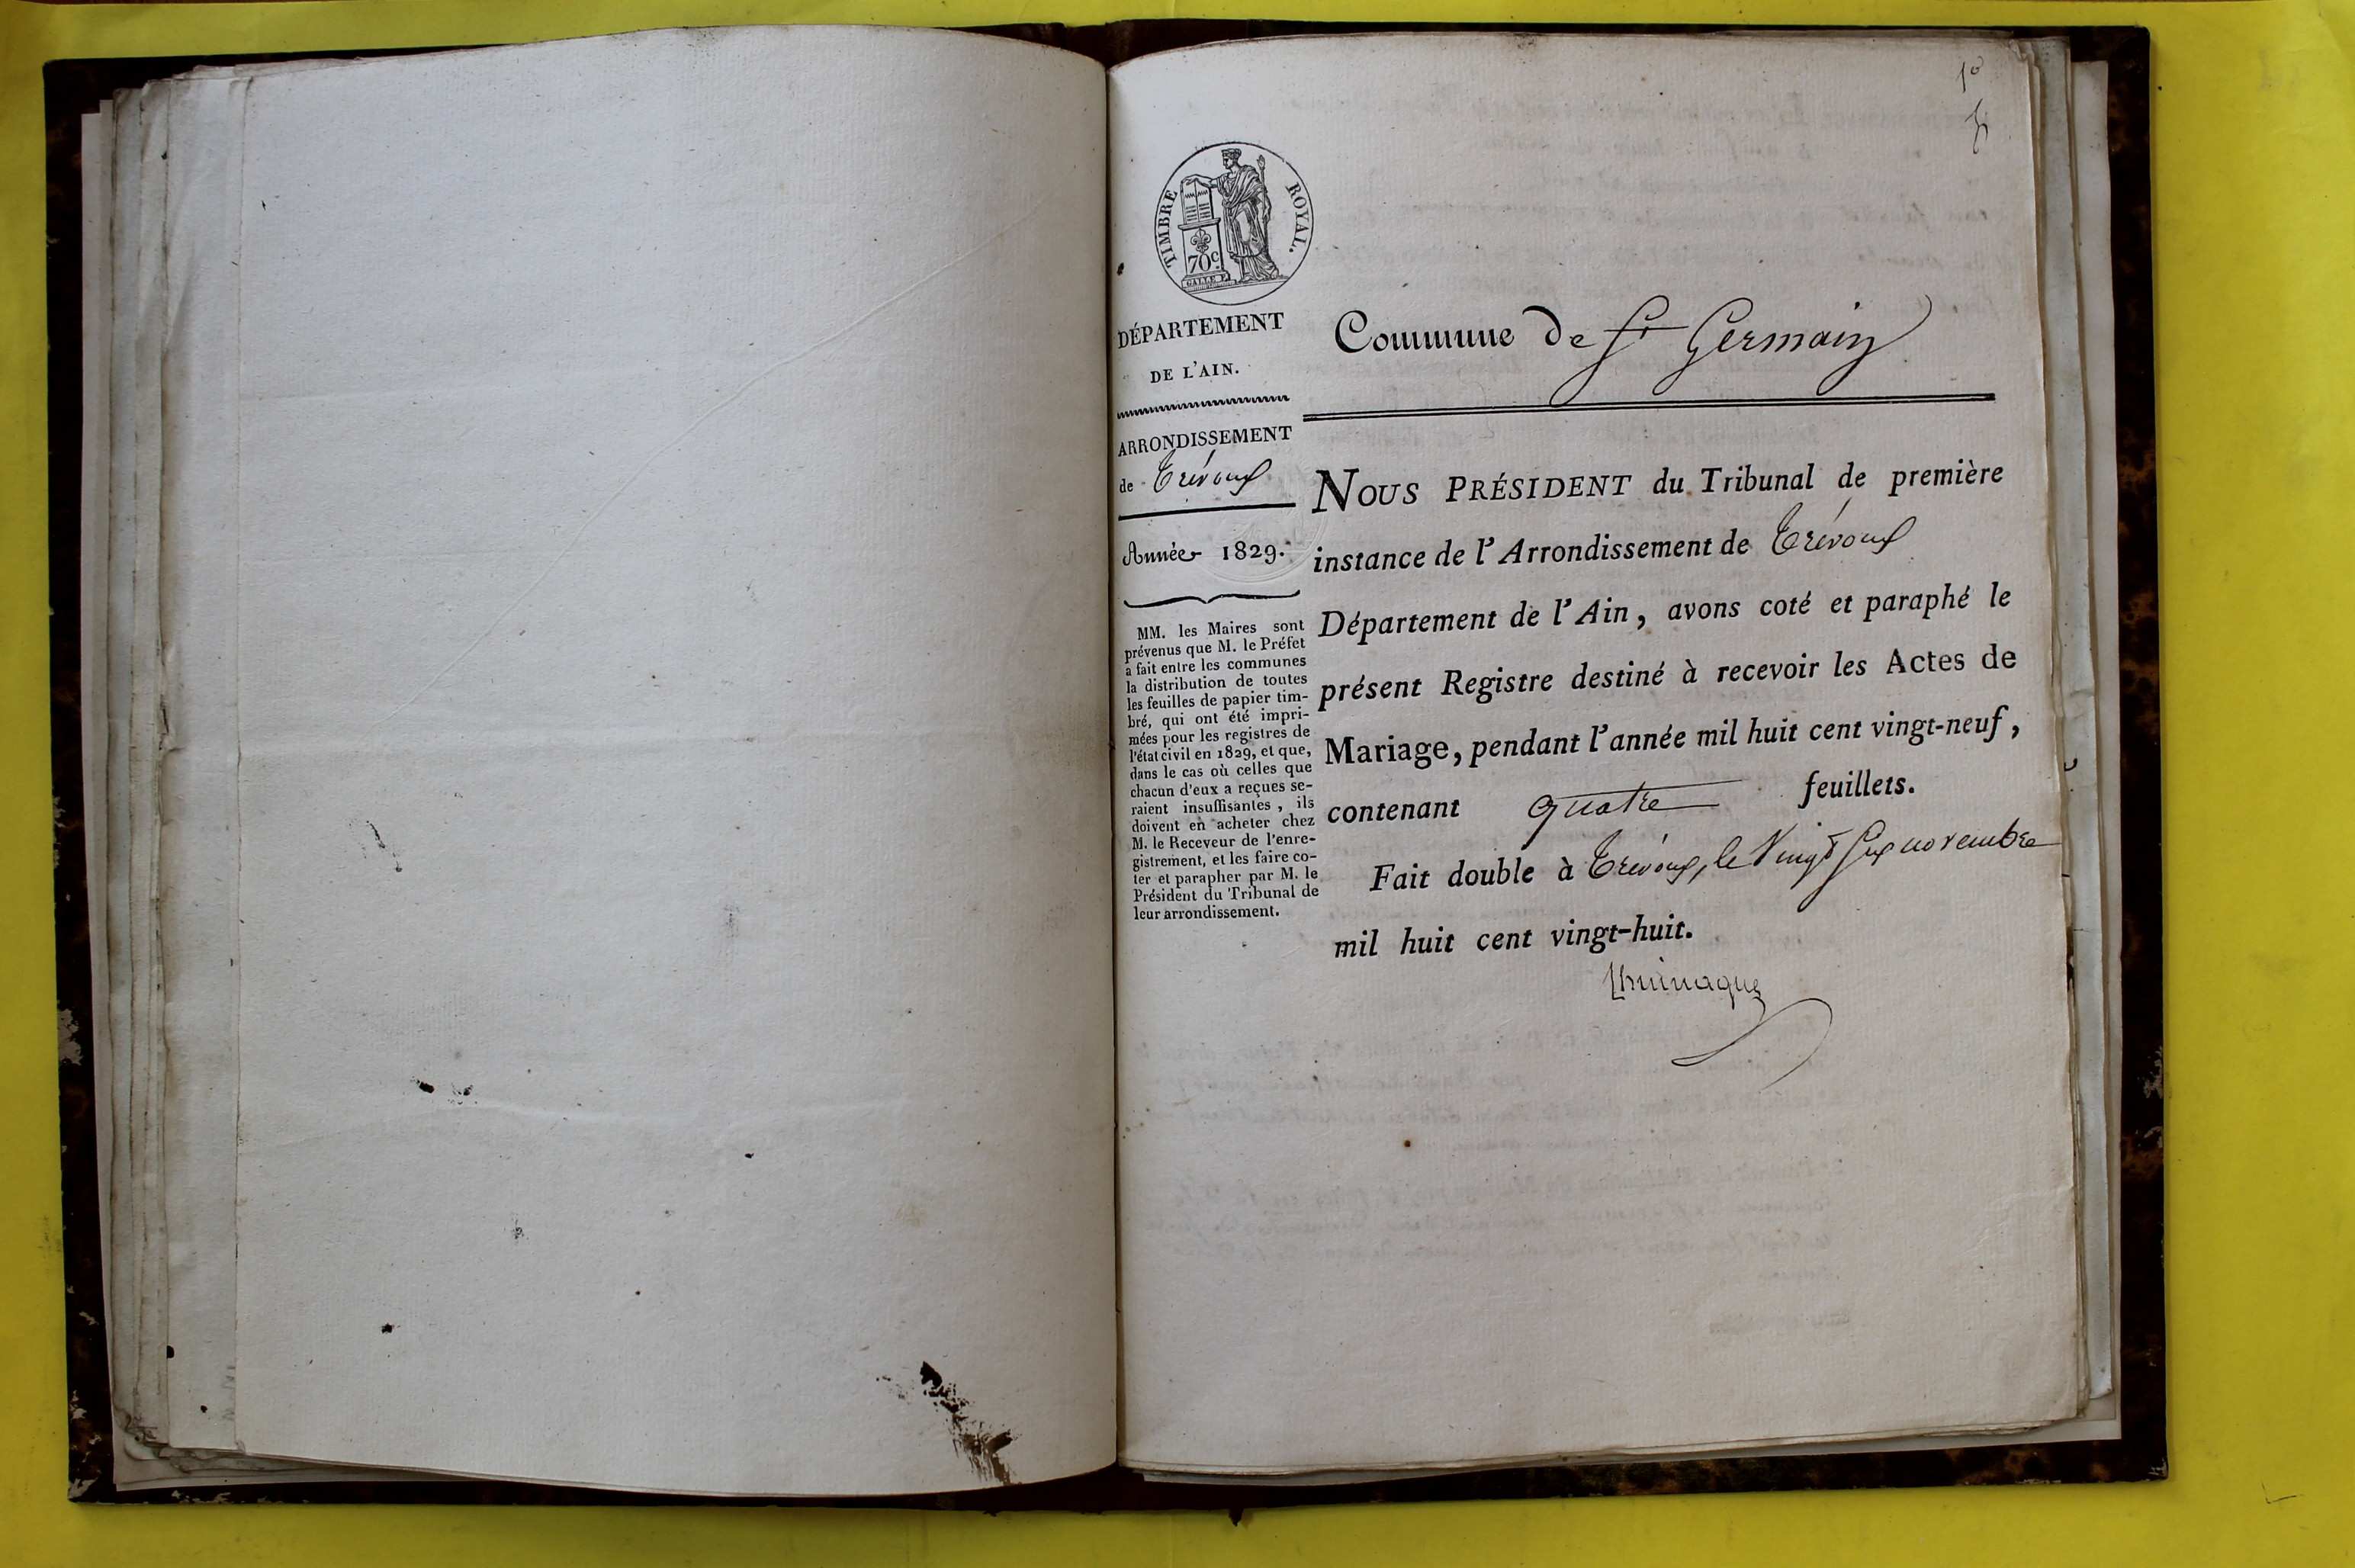 1º
TIMBRE ROYAL.
70c.
GALLE F.
DÉPARTEMENT
DE L'AIN.
ARRONDISSEMENT
de Trévoux
Année 1829.
MM. les Maires sont
prévenus que M. le Préfet
a fait entre les communes
la distribution de toutes
les feuilles de papier tim-
bré, qui ont été impri-
mées pour les registres de
l'état civil en 1829, et que,
dans le cas où celles que
chacun d'eux a reçues se-
raient insuffisantes, ils
doivent en acheter chez
M. le Receveur de l'enre-
gistrement, et les faire co-
ter et parapher par M. le
Président du Tribunal de
leur arrondissement.
Commune de St Germain
NOUS PRÉSIDENT du Tribunal de première
instance de l'Arrondissement de Trévoux
Département de l'Ain, avons coté et paraphé le
présent Registre destiné à recevoir les Actes de
Mariage, pendant l'année mil huit cent vingt-neuf,
contenant quatre feuillets.
Fait double à Trévoux, le Vingt Six novembre
mil huit cent vingt-huit.